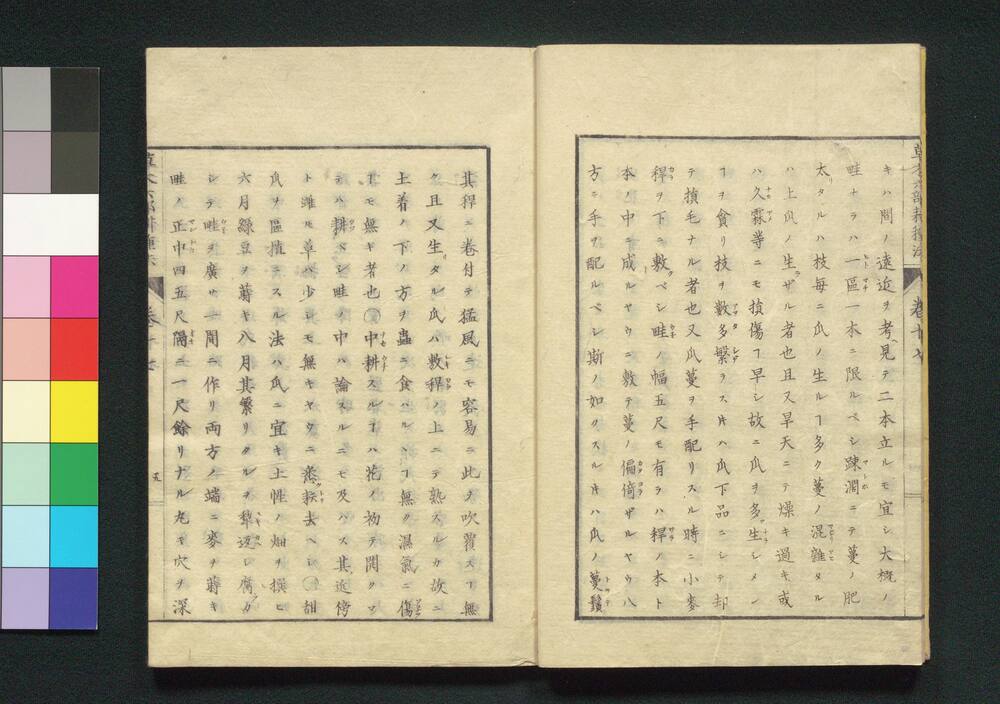 草木六部耕種法 巻十七
キハ間ノ遠近ヲ考見テ二本立ルモ宜シ大概ノ
畦ナラハ一區一本ニ限ルベシ踈濶ニテ蔓ノ肥
太タルハ枝毎ニ瓜ノ生ルヿ多ク蔓ノ混雜タル
ハ上瓜ノ生ザル者也且又旱天ニテ燥キ過キ或
ハ久霖等ニモ損傷ヿ早シ故ニ瓜ヲ多生シメン
ヿヲ貪リ枝ヲ數多繁ラス片ハ瓜下品ニシテ却
テ損毛ナル者也又瓜蔓ヲ手配リスル時ニ小麥
稈ヲ下ニ敷ベシ畦ノ幅五尺モ有ラハ稈ノ本ト
本ノ中ニ成ルヤウニ敷テ蔓ノ偏倚ザルヤウ八
方ニ手ヲ配ルベシ斯ノ如クスル片ハ瓜ノ蔓鬚
其稈ニ卷付テ猛風ニモ容易ニ此ヲ吹覆スヿ無
ク且又生タル瓜ハ敷稈ノ上ニテ熟スルカ故ニ
土着ノ下ノ方ヲ蟲ニ食ハルヽヿ無ク濕氣ニ傷
ヿモ無キ者也〇中耕スルヿハ花ノ初テ開クマ
テハ耕ベシ畦ノ中ハ論スルニモ及ハス其近傍
ト雖モ草ハ少シモ無キヤウニ悉耘去ヘシ〇甜
瓜ヲ區植ニスル法ハ瓜ニ宜キ土性ノ畑ヲ撰ヒ
六月綠豆ヲ蒔キ八月其繁リタルヲ犂返シ腐ラカ
シテ畦ヲ廣サ一間ニ作リ両方ノ端ニ麥ヲ蒔キ
畦ノ正中四五尺隔ニ一尺餘リナル丸キ穴ヲ深
草木六部耕種法 巻十七 五